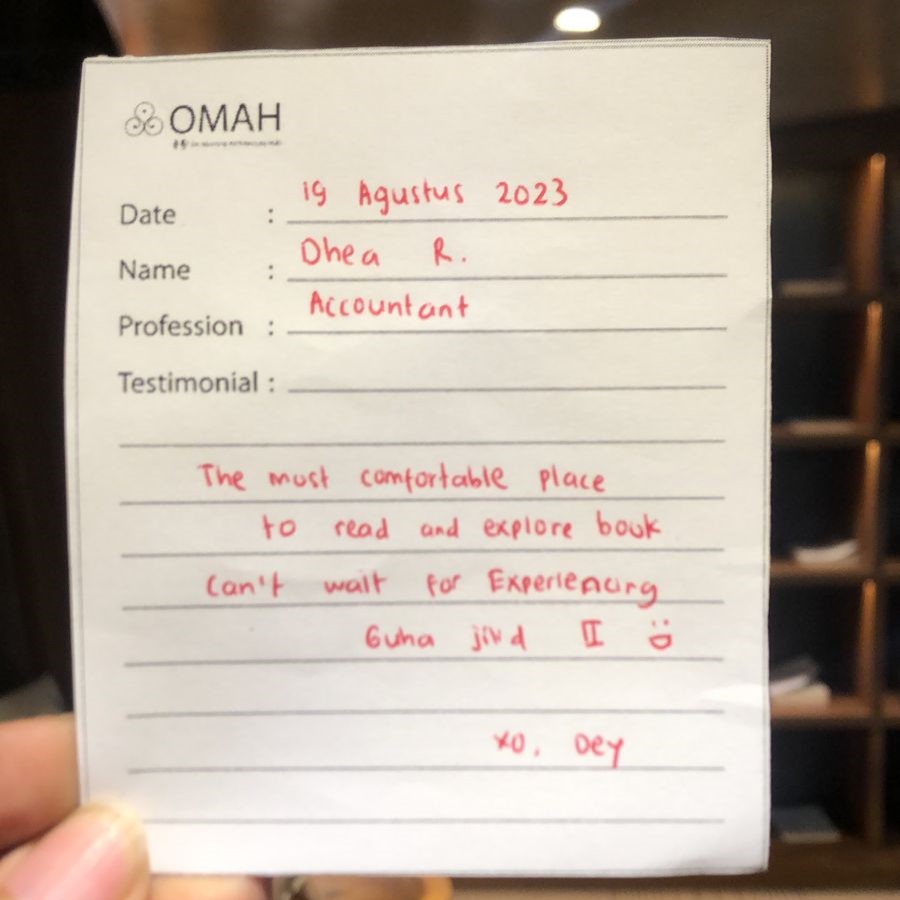 OMAH
Date : 19 Agustus 2023
Name : Dhea R.
Profession : Accountant
Testimonial :
The most comfortable place
to read and explore book
Can't wait for Experiencing
Guha jilid II :D
xo, Dey